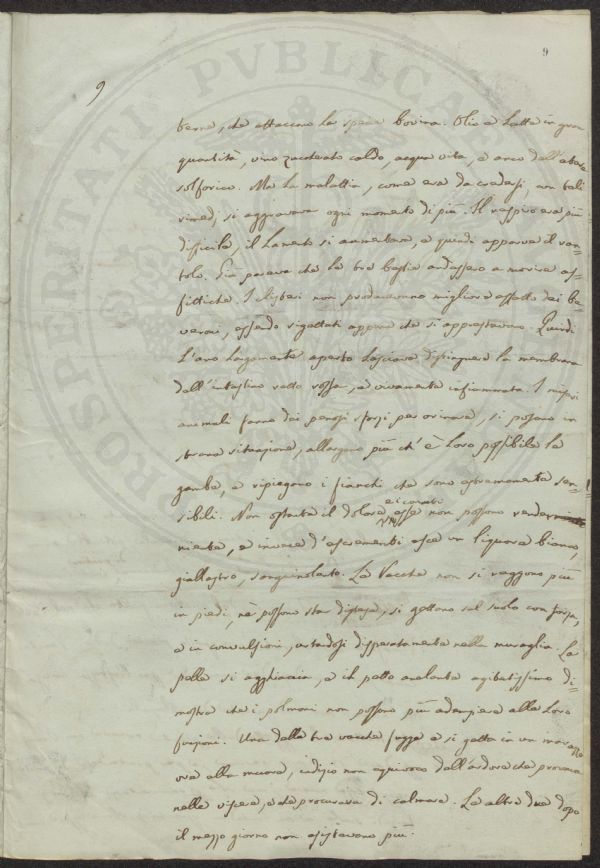 9
9
terne, che attaccano la specie bovina. Olio e Latte in gran
quantità, vino zuccherato caldo, acqua vita, e anco dell'
solforico. Ma la malattia, come era da credersi, con tali
rimedj, si aggravava ogni momento di più. Il respiro era più
difficile, il Lamento si aumentava, e quindi apparve il ran=
tolo. Già pareva che le tre bestie andassero a morire as=
fittiche. I clisteri non producevano migliore effetto dei be=
veroni, essendo rigettati appena che si apprestavano. Quindi
L'ano largamente aperto lasciava distinguere la membrana
dell'intestino retto rossa, e vivamente infiammata. I miseri
animali fanno dei penosi sforzi per orinare, si posano in
strana situazione, allargano più ch'è Loro possibile le
gambe, e ripiegano i fianchi che sono estremamente sen=
sibili. Non ostante il dolore e i conati esse non possono rendere
niente, e invece d'escrementi esce un liquore bianco,
giallastro, sanguinolento. Le Vacche non si reggono più
in piedi, nè possono star distese, si gettano sul suolo con forza,
e in convulsioni, urtandosi disperatamente nella muraglia. La
pelle si agghiaccia, e il petto anelante agitatissimo di=
mostra che i polmoni non possono più adempiere alle Loro
funzioni. Una delle tre vacche fugge e si getta in un
ove alla muore, indizio non equivoco dell'ardore che provava
nelle viscere, e che procurava di calmare. Le altre due dopo
il mezzo giorno non esistevano più.
PROSPERITATI PVBLICAE